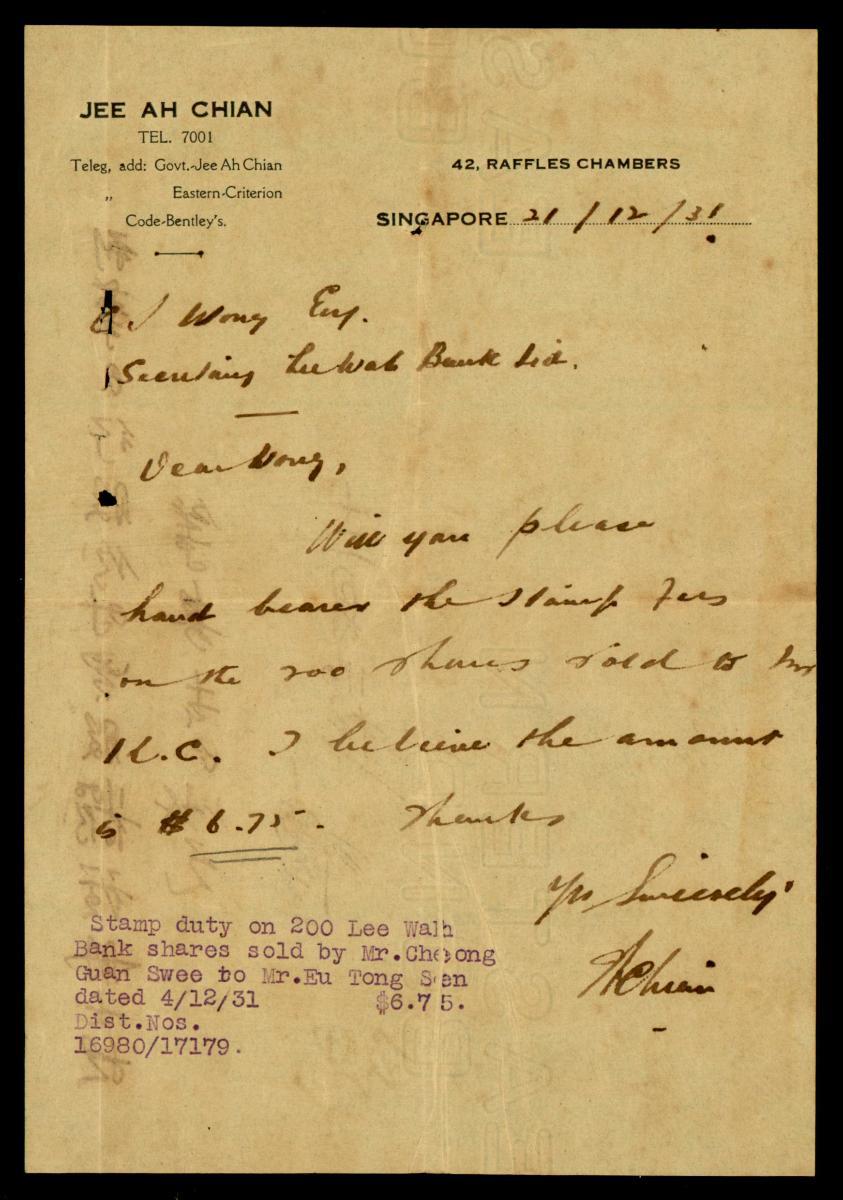 JEE AH CHIAN
TEL. 7001
Teleg, add: Govt.-Jee Ah Chian
„ Eastern-Criterion
Code-Bentley's.
42, RAFFLES CHAMBERS
SINGAPORE 21/12/31
J Wong Esq.
Secretary Lee Wah Bank Ltd.
Dear Wong,
Will you please
hand bearer the stamp fees
on the 200 shares sold to
K.C. I believe the amount
is $6.75. Thanks
Yrs Sincerely
AChian
Stamp duty on 200 Lee Wah
Bank shares sold by Mr.Cheong
Guan Swee to Mr.Eu Tong Sen
dated 4/12/31 $6.75.
Dist.Nos.
16980/17179.